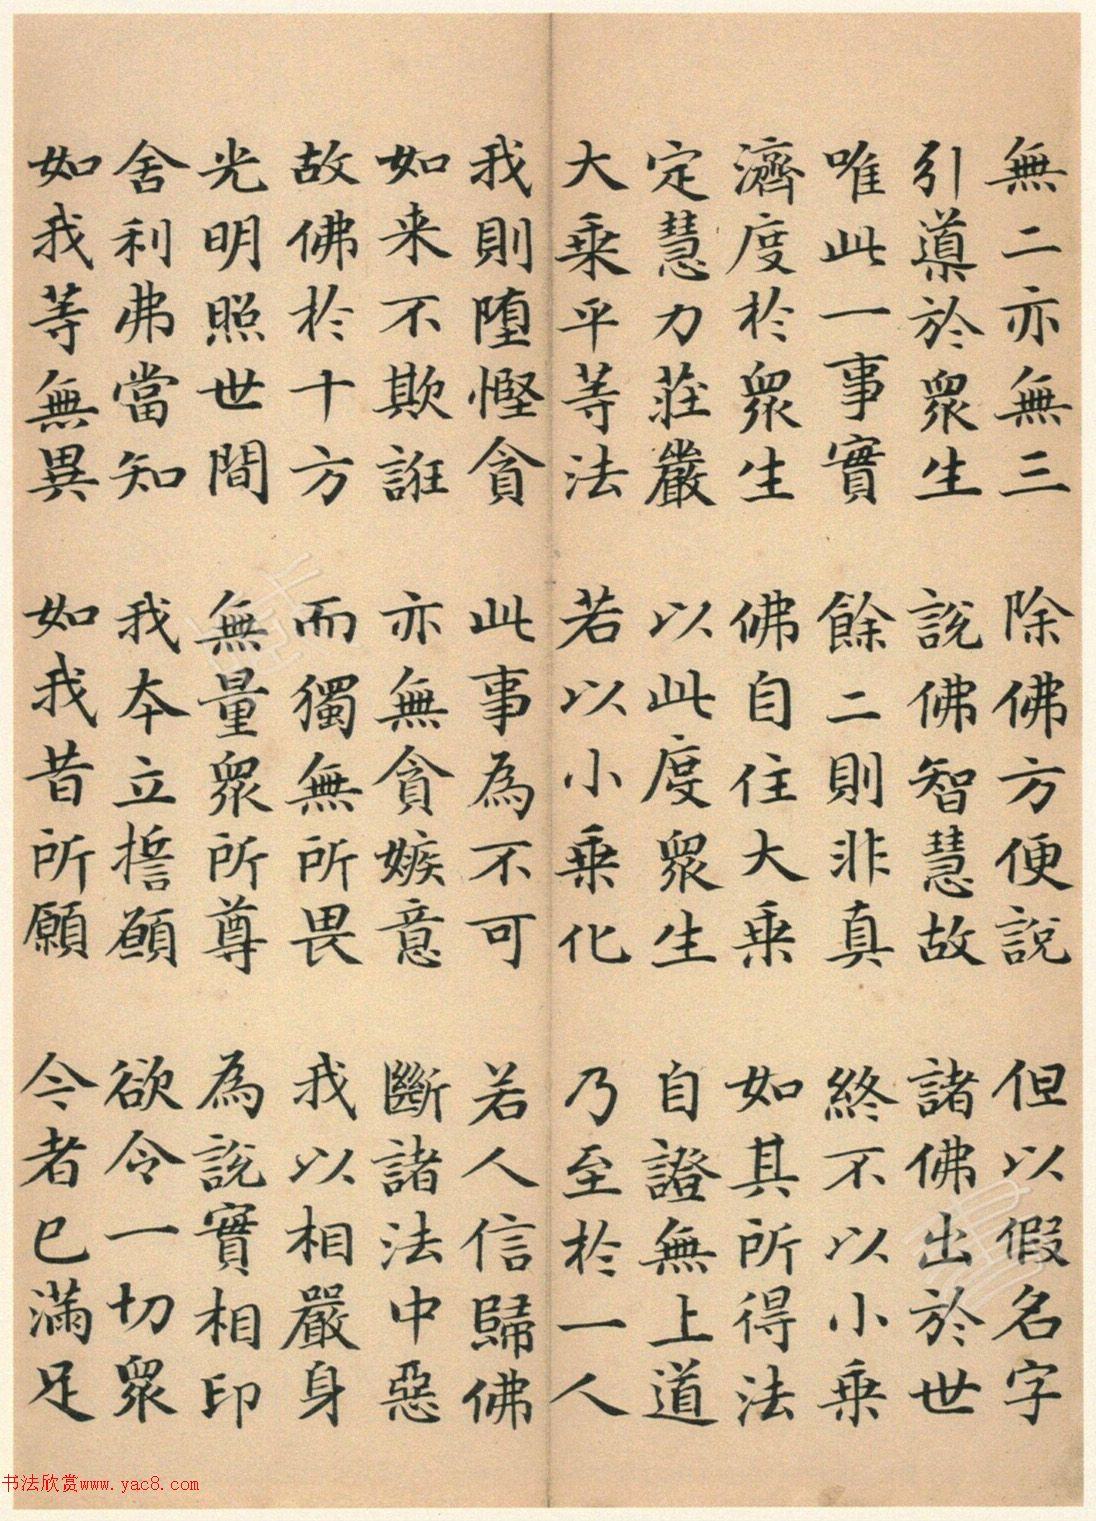 無二亦無三 除佛方便說 但以假名字
引導於眾生 說佛智慧故 諸佛出於世
唯此一事實 餘二則非真 終不以小乘
濟度於眾生 佛自住大乘 如其所得法
定慧力莊嚴 以此度眾生 自證無上道
大乘平等法 若以小乘化 乃至於一人
我則墮慳貪 此事為不可 若人信歸佛
如来不欺誑 亦無貪嫉意 斷諸法中惡
故佛於十方 而獨無所畏 我以相嚴身
光明照世間 無量眾所尊 為說實相印
舍利弗當知 我本立誓願 欲令一切眾
如我等無異 如我昔所願 今者已滿足
书法欣赏www.yac8.com